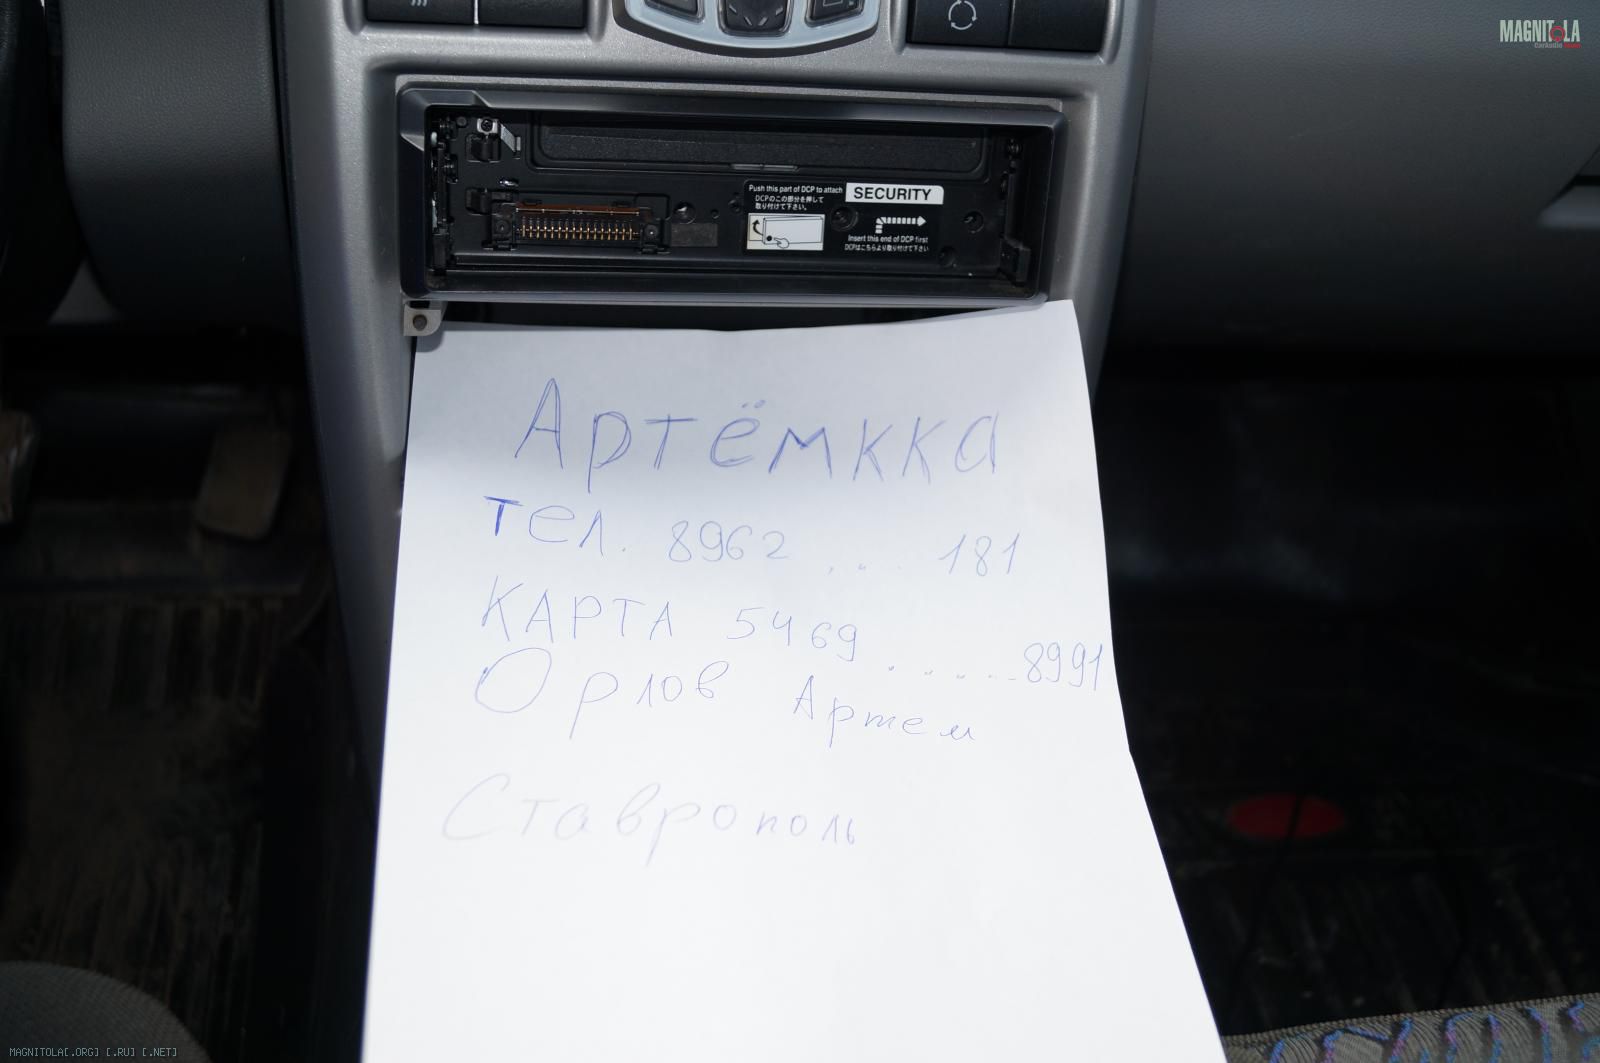 MAGNITOLA
CarAudio
Push this part of DCP to attach
DCPのこの部分を押して
取り付けて下さい。
SECURITY
Insert this end of DCP first
DCPはこちらより取り付けて下さい
Артёмкка
тел. 8962 .... 181
КАРТА 5469 ...... 8991
Орлов Артем
Ставрополь
MAGNITOLA[.ORG] [.RU] [.NET]